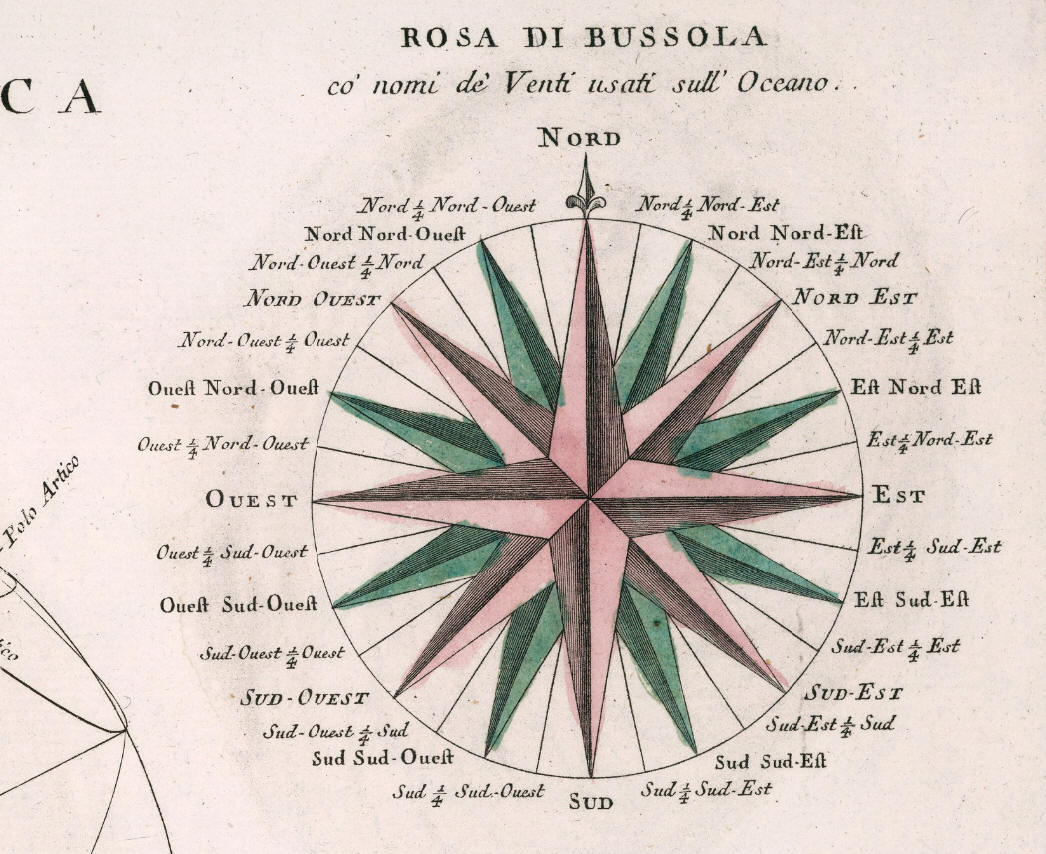 ROSA DI BUSSOLA
co' nomi de' Venti usati sull' Oceano.
CA
NORD
Nord 1/4 Nord-Ouest
Nord 1/4 Nord-Est
Nord Nord-Oueſt
Nord Nord-Eſt
Nord-Ouest 1/4 Nord
Nord-Est 1/4 Nord
NORD OUEST
NORD EST
Nord-Ouest 1/4 Ouest
Nord-Est 1/4 Est
Oueſt Nord-Oueſt
Eſt Nord Eſt
Ouest 1/4 Nord-Ouest
Est 1/4 Nord-Est
OUEST
EST
Polo Artico
Ouest 1/4 Sud-Ouest
Est 1/4 Sud-Est
Oueſt Sud-Oueſt
Eſt Sud-Eſt
Sud-Ouest 1/4 Ouest
Sud-Est 1/4 Est
SUD-OUEST
SUD-EST
Sud-Ouest 1/4 Sud
Sud-Est 1/4 Sud
Sud Sud-Oueſt
Sud Sud-Eſt
Sud 1/4 Sud-Ouest
Sud 1/4 Sud-Est
SUD